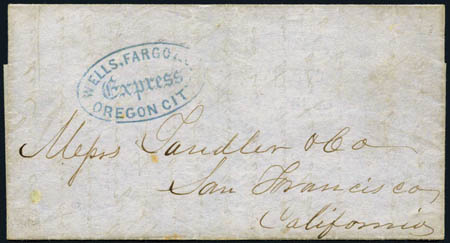 WELLS, FARGO &
Express
OREGON CIT
Messrs Sandler & Co
San Francisco
California